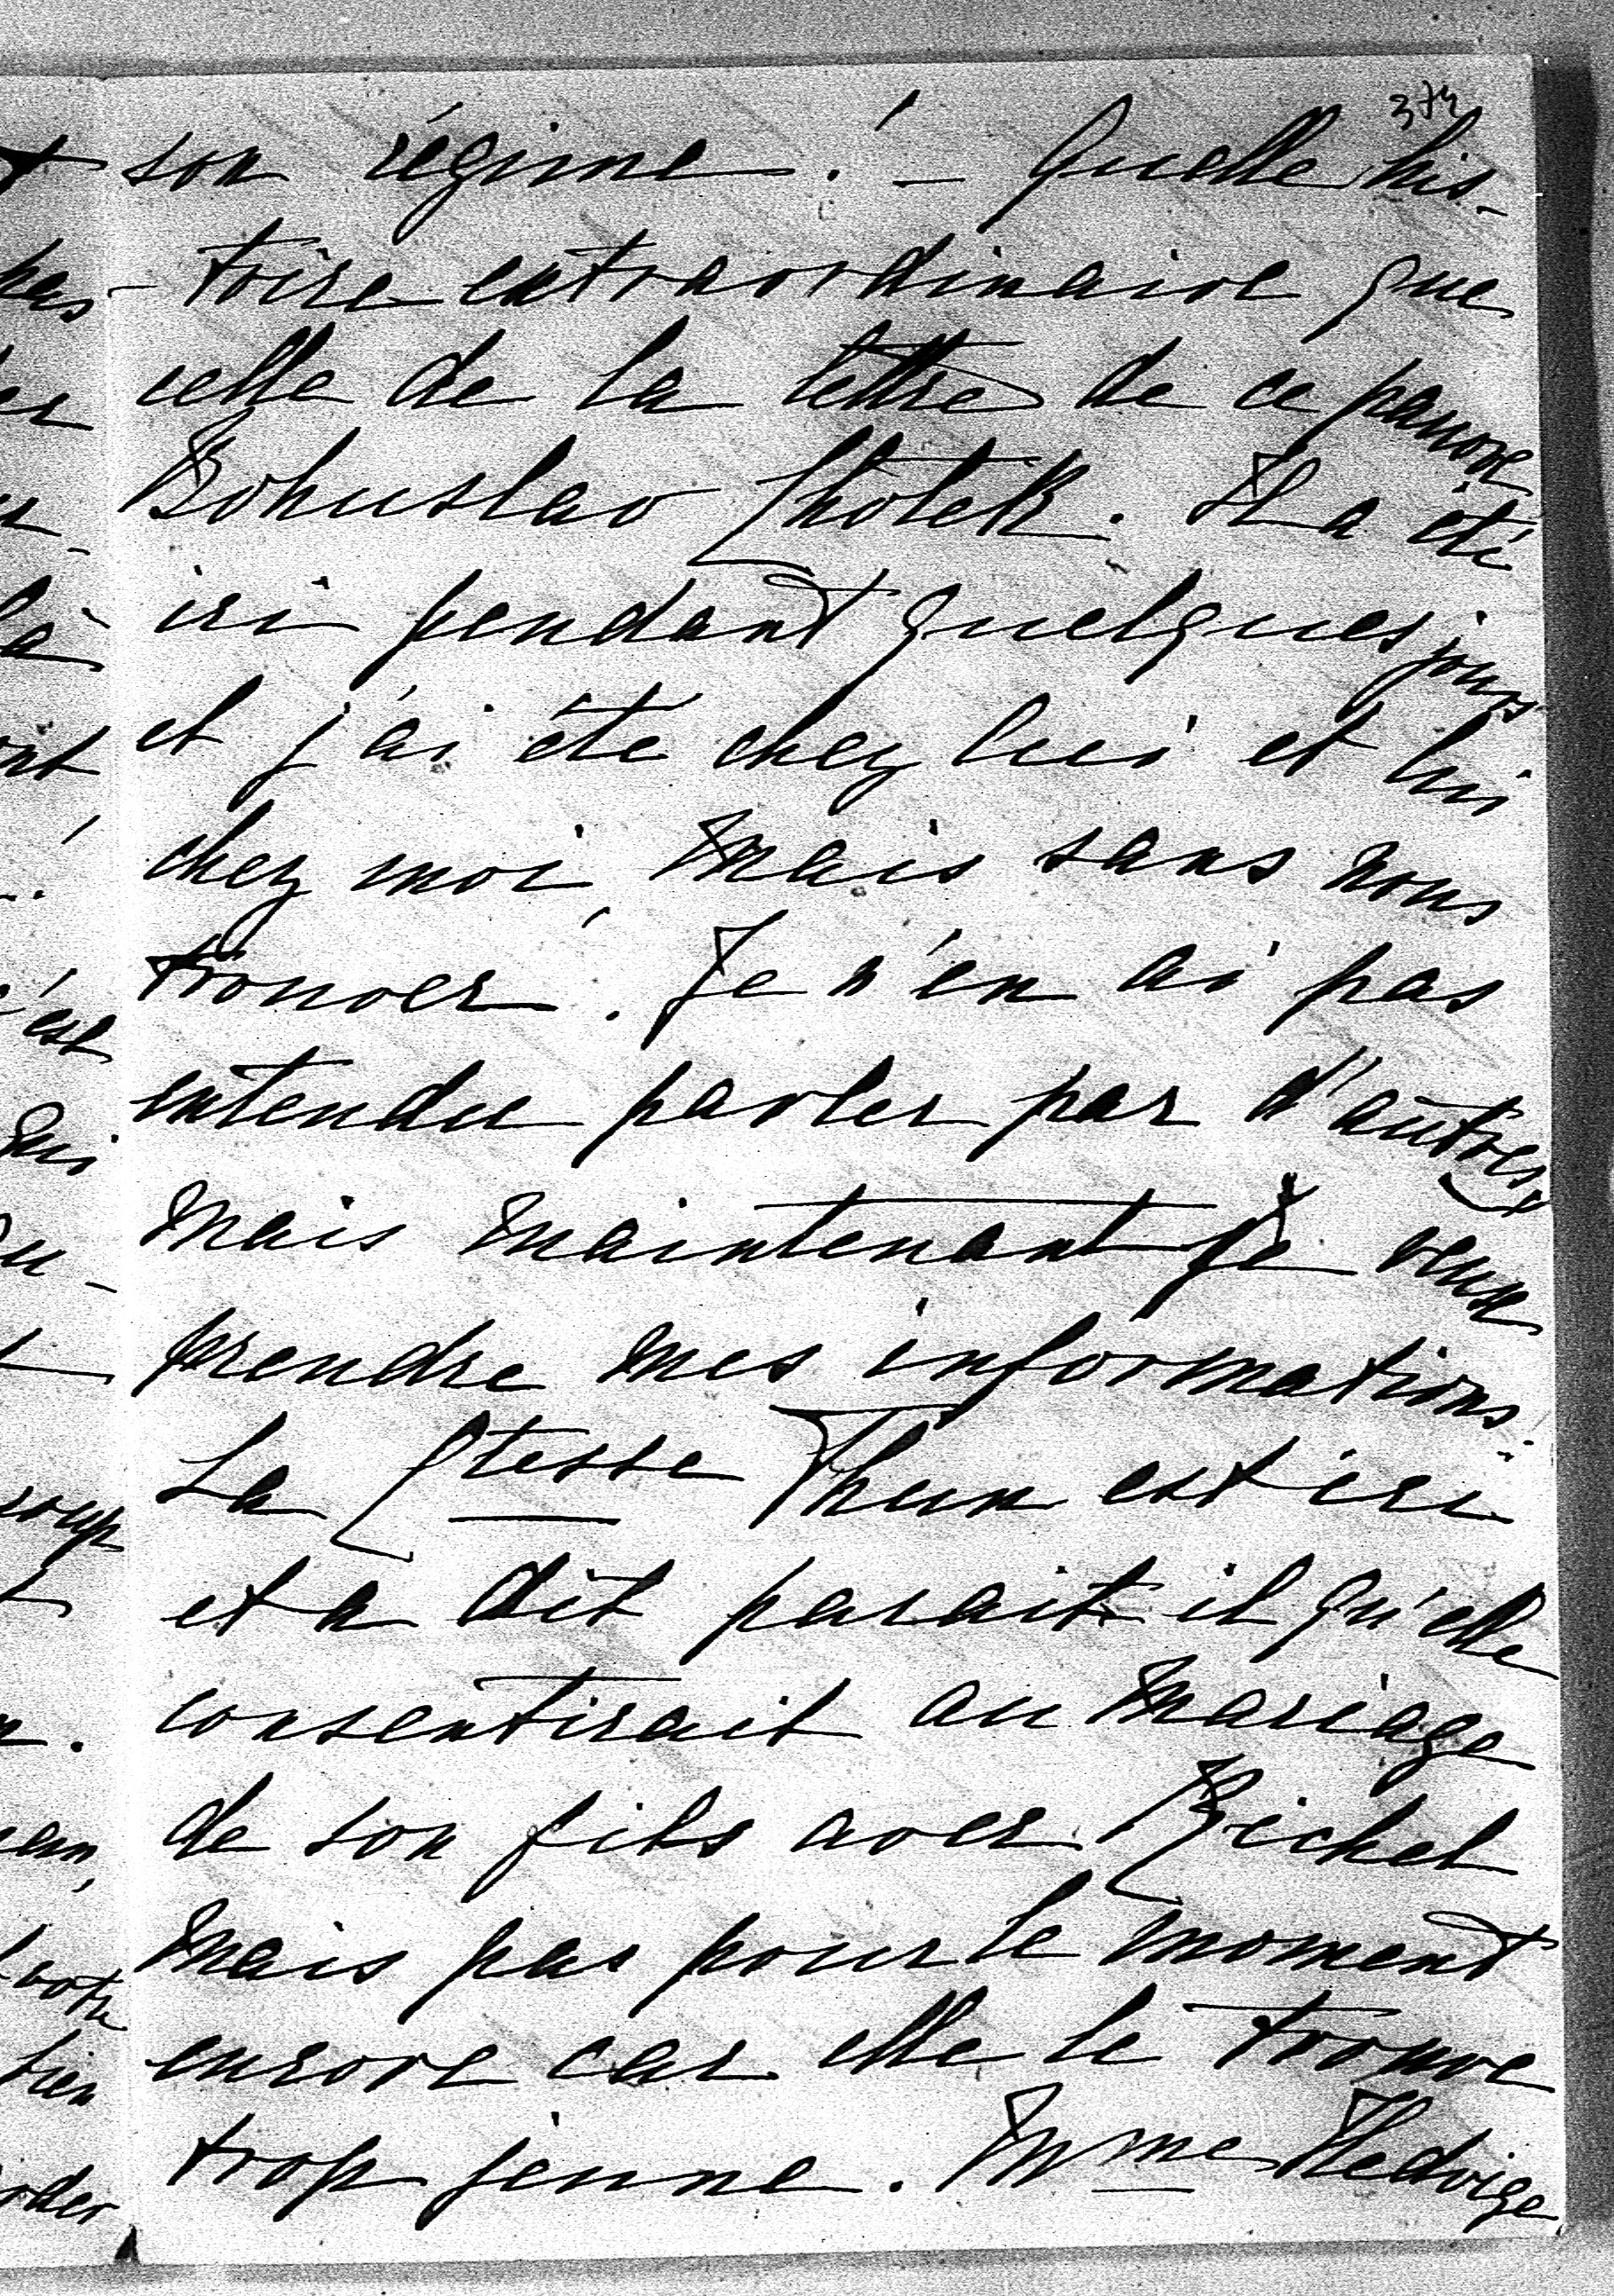 374
son régime! – Quelle his-
toire extraordinaire que
celle de la lettre de ce pauvre
Bohuslav Chotek. Il a été
ici pendant quelques jours
et j'ai été chez lui et lui
chez moi, mais sans nous
trouver. Je n'en ai pas
entendu parler par d'autres
mais maintenant je veux
prendre mes informations.
La Ctesse Thun est ici
et a dit parait il qu'elle
consentirait au mariage
de son fils avec
mais pas pour le moment
encore car elle le trouve
trop jeune. Mme Hedvige